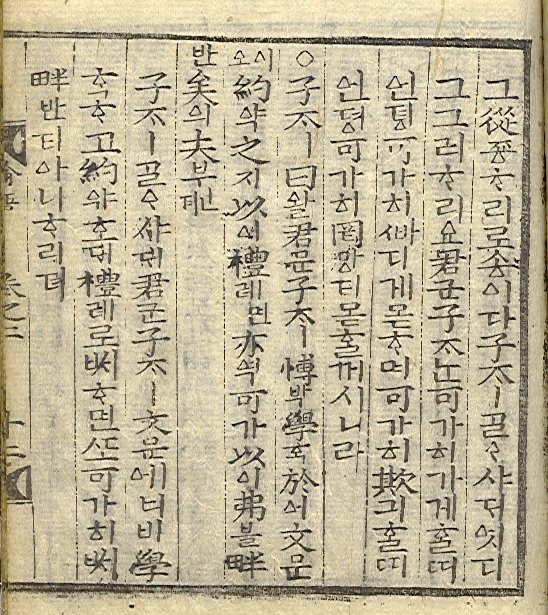 그從죵ᄒᆞ리로소이다子ᄌᆞㅣᄀᆞᆯᄋᆞ샤ᄃᆡ엇디
그그러ᄒᆞ리오君군子ᄌᆞᄂᆞᆫ可가히가게ᄒᆞᆯ띠
언뎡可가히ᄲᅡ디게몯ᄒᆞ며可가히欺긔ᄒᆞᆯ띠
언뎡可가히罔망티몯ᄒᆞᆯ꺼시니라
○子ᄌᆞㅣ曰왈君군子ᄌᆞㅣ博박學ᄒᆞᆨ於어文문
約약之지以이禮례면亦역可가以이弗블畔
반矣의夫부뎌
子ᄌᆞㅣᄀᆞᆯᄋᆞ샤ᄃᆡ君군子ᄌᆞㅣ文문에너비學
ᄒᆞᆨᄒᆞ고約약호ᄃᆡ禮례로ᄡᅥᄒᆞ면ᄯᅩ可가히ᄡᅥ
畔반티아니ᄒᆞ리뎌
卷之二